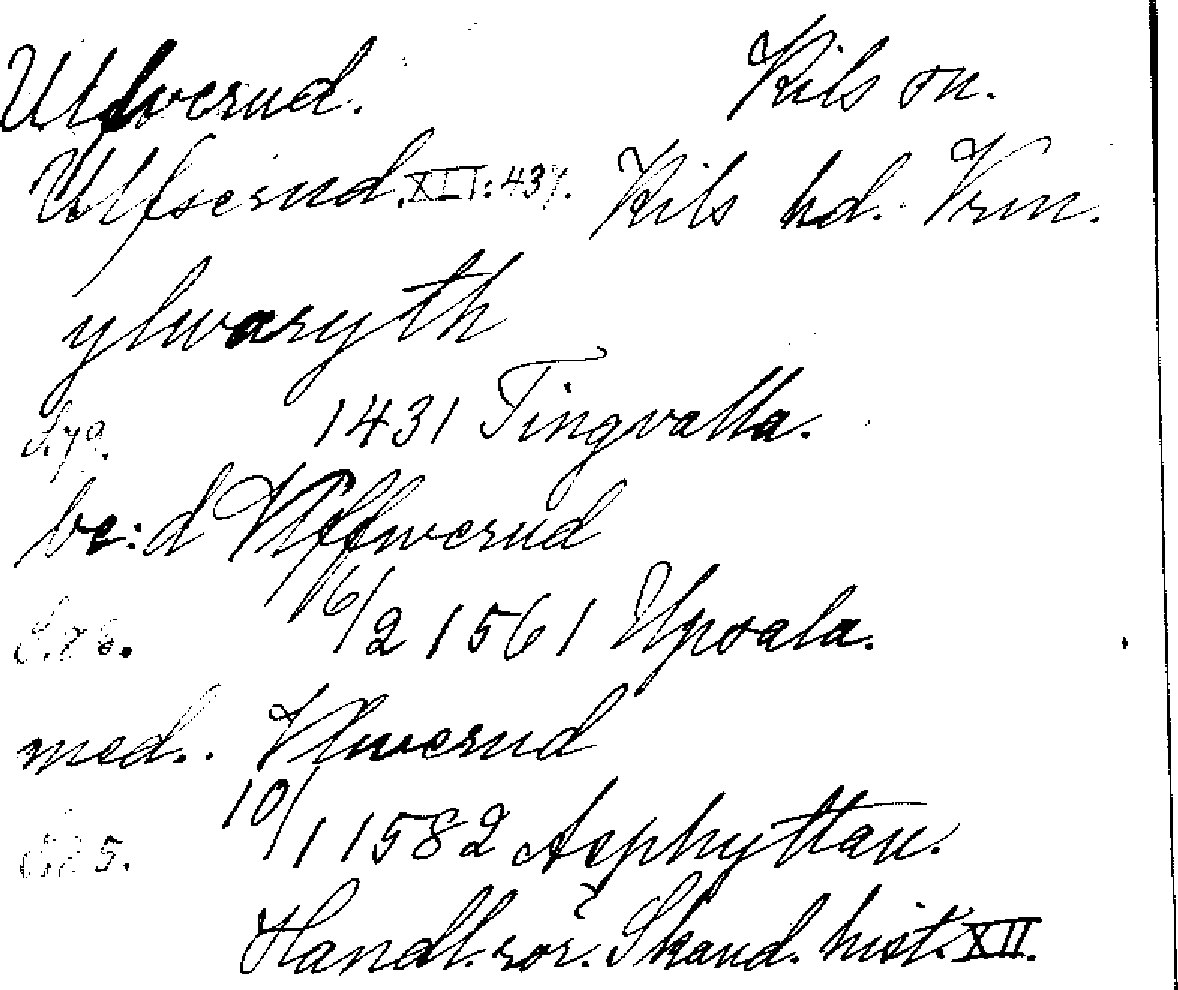 Ulfverud. Kils sn.
Ulfserud. XLI:437. Kils hd. Vrm.
ylwaryth
1431 Tingvalla.
be:d Vlffwerud
16/2 1561 Upsala.
med. Vlwerud
10/1 1582 Asphyttan.
Handl. rör. Skand. hist. XII.